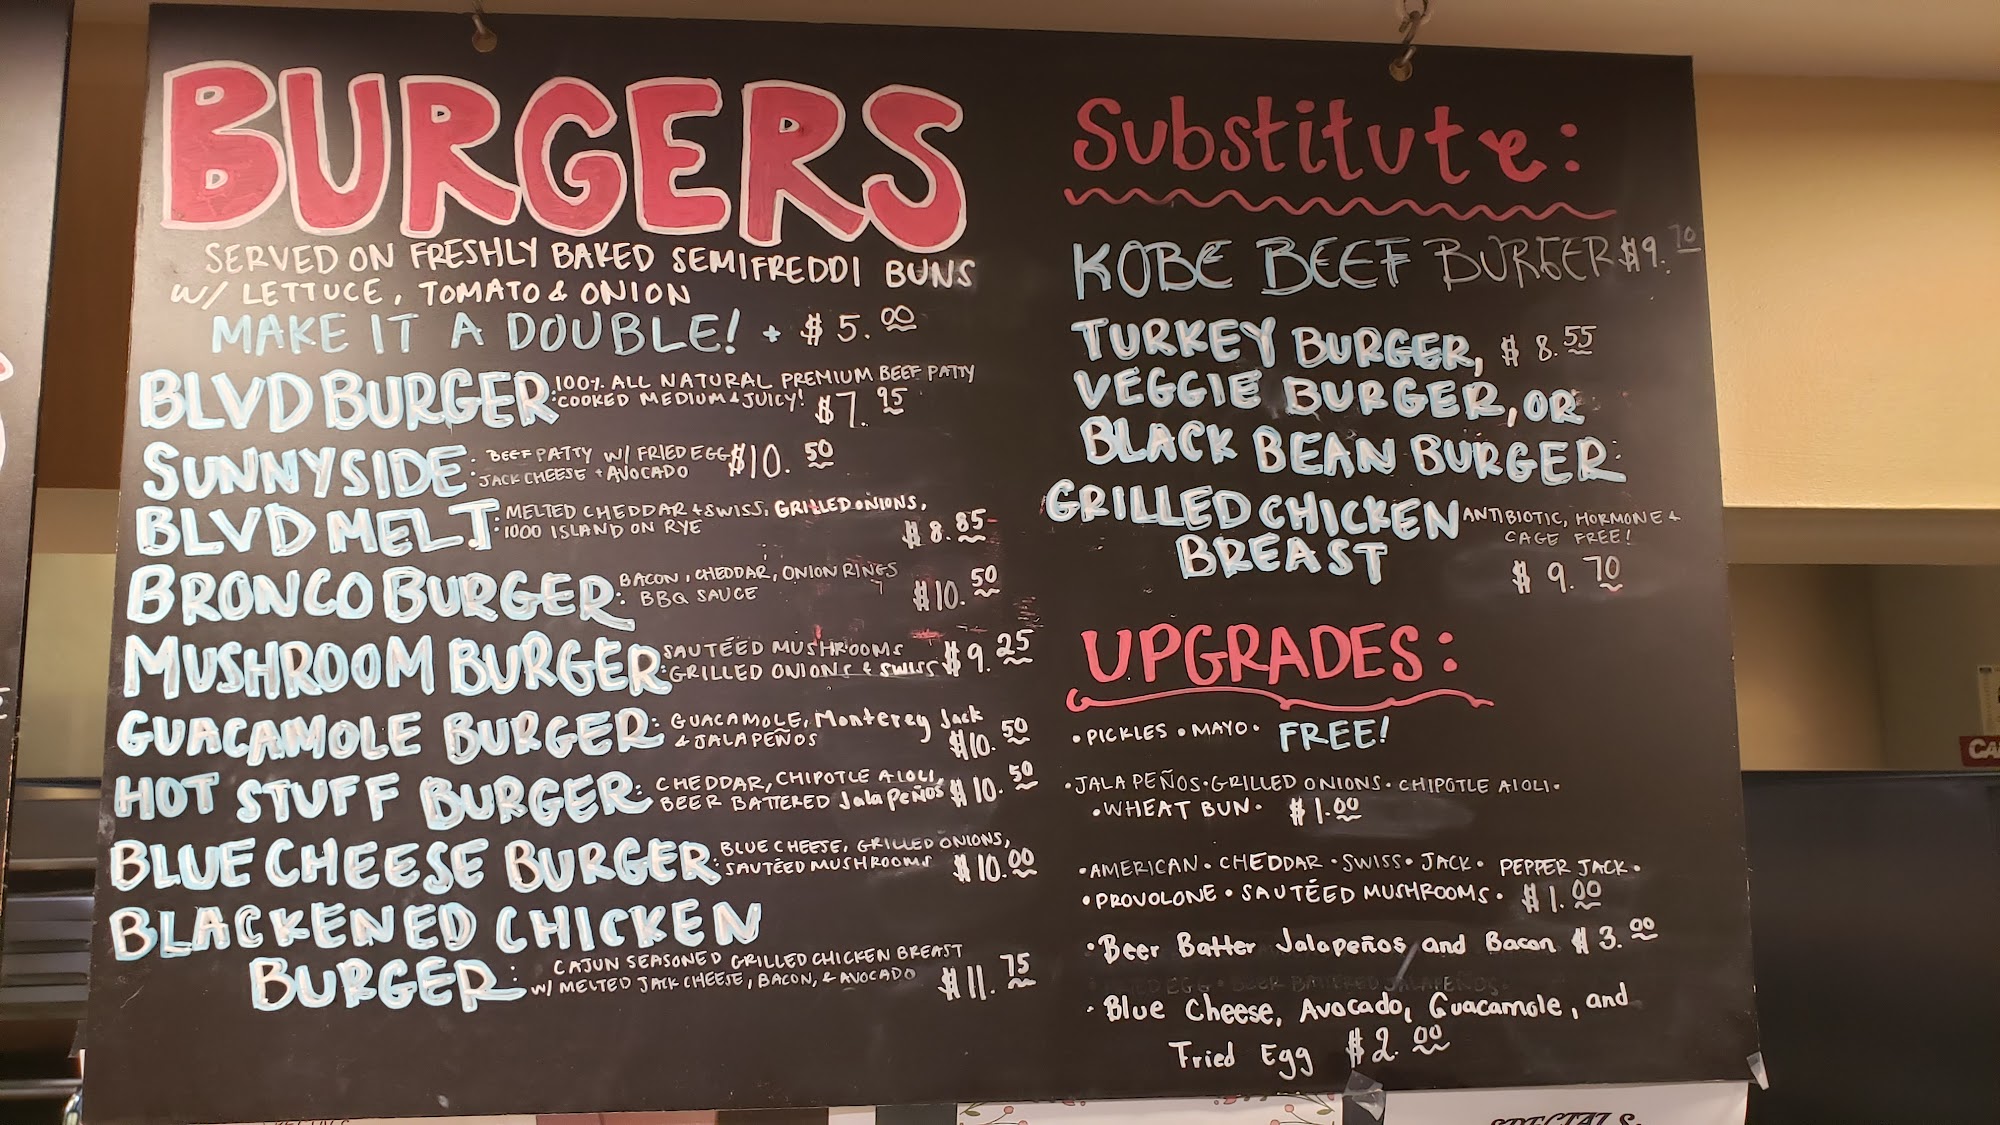 BURGERS
SERVED ON FRESHLY BAKED SEMIFREDDI BUNS
W/ LETTUCE, TOMATO & ONION
MAKE IT A DOUBLE! + $5.00
BLVD BURGER: 100% ALL NATURAL PREMIUM BEEF PATTY
COOKED MEDIUM & JUICY! $7.95
SUNNYSIDE: BEEF PATTY W/ FRIED EGG $10.50
JACK CHEESE + AVOCADO
BLVD MELT: MELTED CHEDDAR + SWISS, GRILLED ONIONS,
1000 ISLAND ON RYE $8.85
BRONCO BURGER: BACON, CHEDDAR, ONION RINGS
BBQ SAUCE $10.50
MUSHROOM BURGER: SAUTÉED MUSHROOMS
GRILLED ONIONS & SWISS $9.25
GUACAMOLE BURGER: GUACAMOLE, Monterey Jack
& JALAPEÑOS $10.50
HOT STUFF BURGER: CHEDDAR, CHIPOTLE AIOLI,
BEER BATTERED JalaPeños $10.50
BLUE CHEESE BURGER: BLUE CHEESE, GRILLED ONIONS,
SAUTÉED MUSHROOMS $10.00
BLACKENED CHICKEN
BURGER: CAJUN SEASONED GRILLED CHICKEN BREAST
W/ MELTED JACK CHEESE, BACON, & AVOCADO $11.75
Substitute:
KOBE BEEF BURGER $9.70
TURKEY BURGER, $8.55
VEGGIE BURGER, OR
BLACK BEAN BURGER:
GRILLED CHICKEN ANTIBIOTIC, HORMONE &
BREAST CAGE FREE!
$9.70
UPGRADES:
• PICKLES • MAYO • FREE!
• JALAPEÑOS • GRILLED ONIONS • CHIPOTLE AIOLI •
• WHEAT BUN • $1.00
• AMERICAN • CHEDDAR • SWISS • JACK • PEPPER JACK •
• PROVOLONE • SAUTÉED MUSHROOMS • $1.00
• Beer Batter Jalapeños and Bacon $3.00
EGG • BEER BATTERED JALAPEÑOS •
• Blue Cheese, Avocado, Guacamole, and
Fried Egg $2.00
SPECIALS: